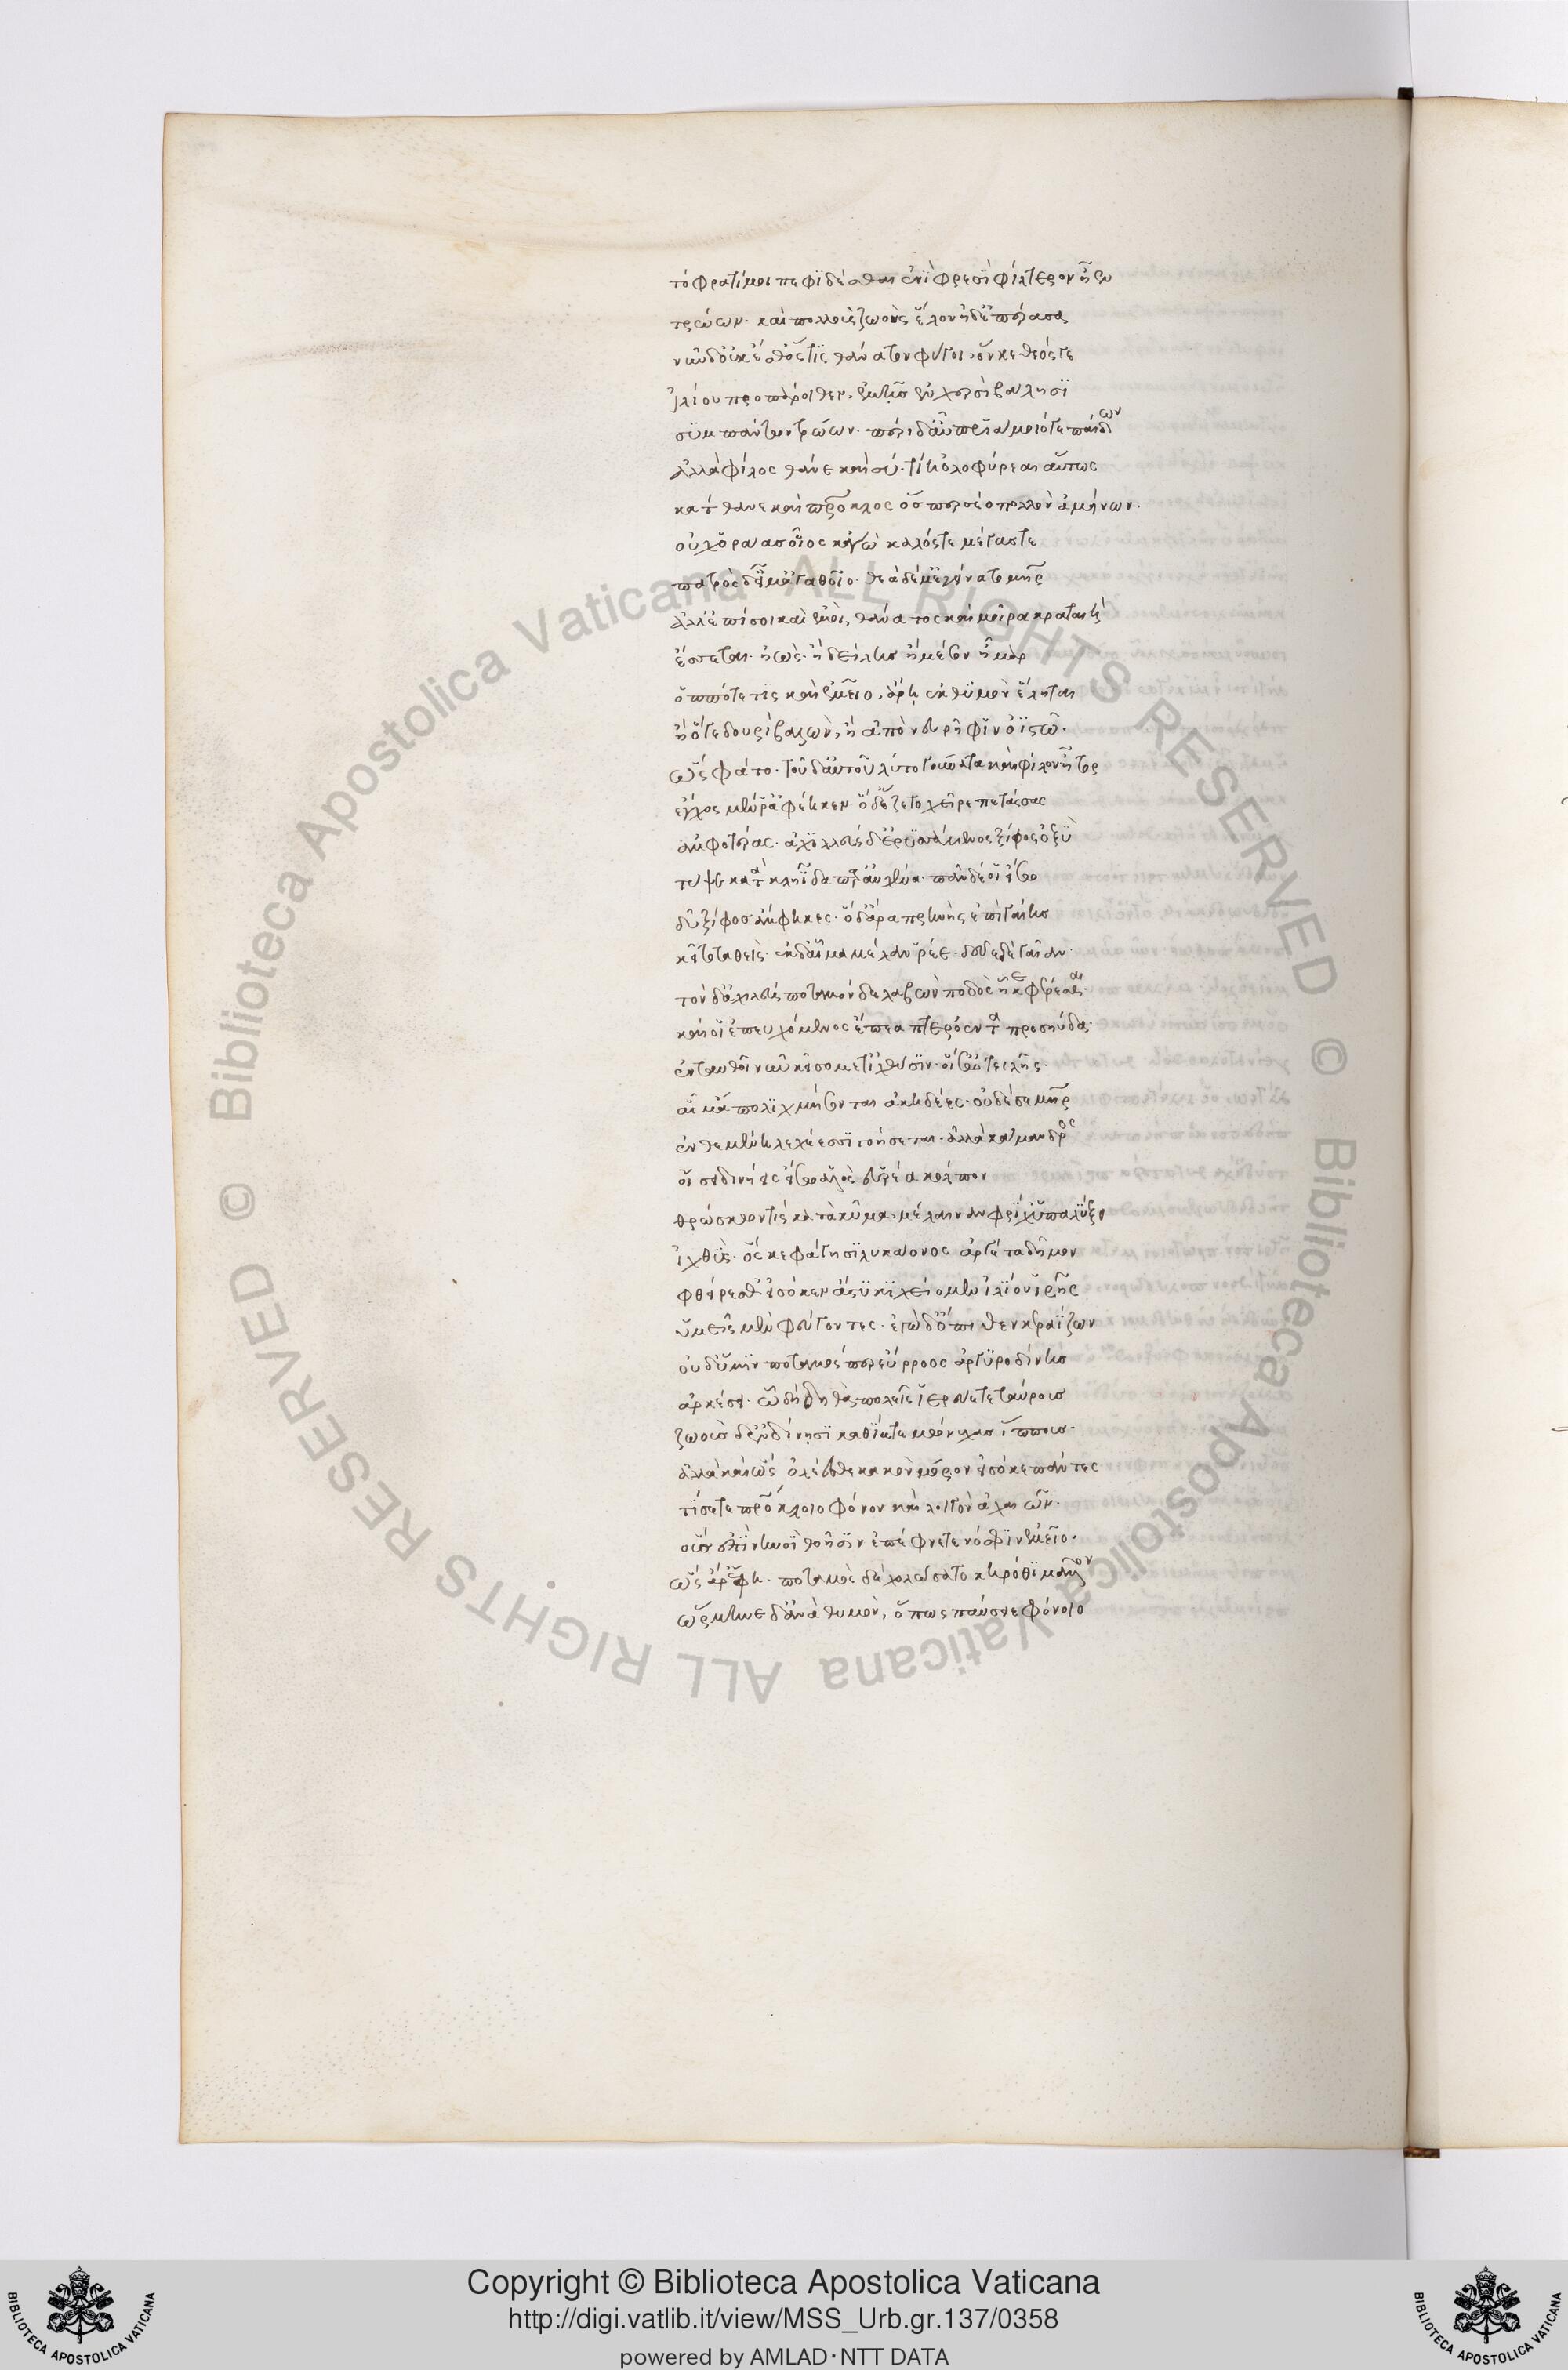 τόφρα τί μοι πεφϊδέσθαι ἐνῒ φρεσῒ φίλτερον ἦεν
τρώων. καὶ πολλοὺς ζωοὺς ἕλον ἠδ' ἐπέρασα
νῦν δ' οὐκ ἔσθ' ὅστϊς θάνατον φύγοι, ὅν κε θεός γε
ἰλίου προπάροιθεν, ἐμῆισ ἐν χερσὶ βάλησϊ
σϋμπάντων τρώων. περὶ δ' αὖ πριάμοιό γε παίδων
ἀλλὰ φίλος θάνε καὶ σύ. τί ἢ ὀλοφύρεαι αὕτως
κάτθανε καὶ πάτροκλος ὅσπερ σέο πολλὸν ἀμείνων.
οὐχ' ὁράασ οἷος κἀγὼ καλός τε μέγας τε
πατρὸς δ' εἴμ' ἀγαθοῖο. θεὰ δέ μ' ἐγείνατο μήτηρ
ἀλλ' ἐπί σοι καὶ ἐμοὶ, θάνατος καὶ μοῖρα κραταιὴ
ἔσσεται. ἠὼς. ἢ δείλησ ἢ μέσον ἦμαρ
ὁππότε τϊς καὶ ἐμεῖο, ἄρηι ἐκ θϋμὸν ἕληται
ἢ ὅγε δουρὶ βαλὼν, ἢ ἀπὸ νευρῆφϊν ὀϊστῶ.
ὣς φάτο. τοῦ δ' αὐτοῦ λύτο γούνατα καὶ φίλον ἦτορ
ἔγχος μέν ῥ' ἀφέηκεν. ὁ δ' ἕζετο χεῖρε πετάσσας
ἀμφοτέρας. ἀχϊλλεὺς δ' ἐρϋσσάμενος ξίφος ὀξῢ
τύψε κατὰ κληῗδα παρ' αὐχένα. πᾶν δέ οἱ εἴσω
δῦ ξίφοσ ἄμφηκες. ὁ δ' ἄρα πρηνὴς ἐπὶ γαίησ
κεῖτο ταθεὶς. ἐκ δ' αἷμα μέλαν ῥέε. δεῦε δὲ γαῖαν.
τὸν δ' ἀχιλεὺς ποταμὸν δὲ λαβὼν ποδὸς ἧκε φέρεσθαι.
καί οἱ ἐπευχόμενος ἔπεα πτερόεντα προσηύδα.
ἐνταυθοῖ νῦν κεῖσο μετ' ἰχθύσϊν. οἵ σ' ὠτειλῆς.
αἷμ' ἀπολϊχμήσονται ἀκηδέες. οὐδέ σε μήτηρ
ἐνθεμένη λεχέεσσϊ γοήσεται. ἀλλὰ σκάμανδρος
οἴσει δινήεις εἴσω ἁλὸς εὐρέα κόλπον
θρώσκων τϊς κατὰ κῦμα, μέλαιναν φρῖχ' ὑπαλΰξει
ἰχθῢς. ὅς κε φάγησϊ λυκάονος ἀργέτα δημὸν
φθείρεσθ' εἰσόκεν ἄστϋ κϊχείομεν ἰλίου ἱρῆς
ὑμεῖς μὲν φεύγοντες. ἐγὼ δ' ὄπιθεν κεραΐζων
οὐδ' ὑμῖν ποταμός περ ἐΰρροος ἀργϋροδίνησ
ἀρκέσει. ὧ δὴ δηθὰ πολεῖς ἱερεύετε ταύρουσ
ζωοὺσ δ' ἐν δίνησϊ καθΐετε μώνυχασ ἵππουσ.
ἀλλὰ καὶ ὣς ὀλέεσθε κακὸν μόρον εἰσόκε πάντες
τΐσετε πατρόκλοιο φόνον καὶ λοιγὸν ἀχαιῶν.
οὓσ ἐπῒ νηυσῒ θοῆσϊν ἐπέφνετε νόσφϊν ἐμεῖο.
ὣς ἄρ' ἔφη. ποταμὸς δὲ χολώσατο κηρόθϊ μᾶλλον
ὥρμηνε δ' ἀνὰ θυμὸν, ὅπως παύσειε φόνοιο
Copyright © Biblioteca Apostolica Vaticana
http://digi.vatlib.it/view/MSS_Urb.gr.137/0358
powered by AMLAD·NTT DATA
BIBLIOTECA APOSTOLICA VATICANA
BIBLIOTECA APOSTOLICA VATICANA
© Biblioteca Apostolica Vaticana ALL RIGHTS RESERVED
© Biblioteca Apostolica Vaticana ALL RIGHTS RESERVED